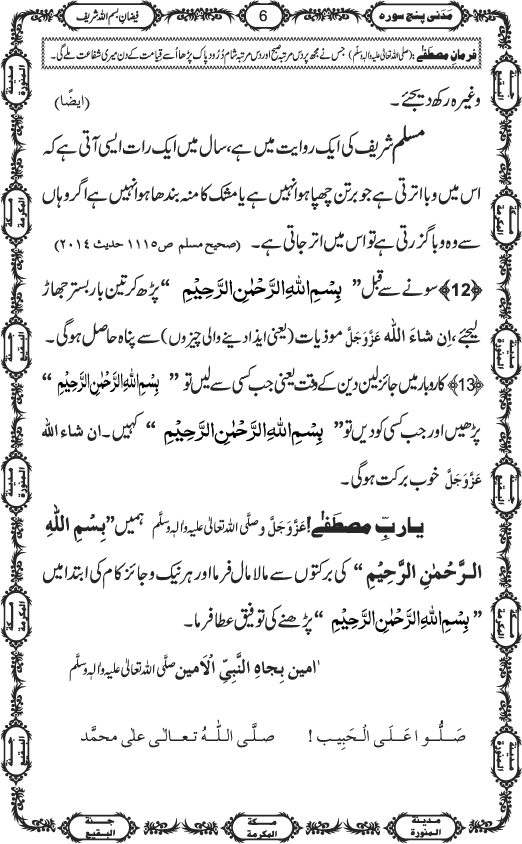 مَدَنی پنج سورہ
6
فیضانِ بسم اللہ شریف
فرمانِ مصطَفٰے : (صلی اللہ تعالیٰ علیہ واٰلہٖ وسلّم) جس نے مجھ پر دس مرتبہ صبح اور دس مرتبہ شام دُرُودِ پاک پڑھا اُسے قِیامت کے دن میری شفاعت ملے گی۔
وغیرہ رکھ دیجئے۔ (ایضًا)
مسلم شریف کی ایک روایت میں ہے، سال میں ایک رات ایسی آتی ہے کہ
اس میں وبا اترتی ہے جو برتن چھپا ہوا نہیں ہے یا مشک کا منہ بندھا ہوا نہیں ہے اگر وہاں
سے وہ وبا گزرتی ہے تو اس میں اتر جاتی ہے۔ (صحیح مسلم ص۱۱۱۵ حدیث ۲۰۱۴)
﴿12﴾ سونے سے قبل ”بِسْمِ اللهِ الرَّحْمٰنِ الرَّحِيْمِ“ پڑھ کر تین بار بستر جھاڑ
لیجئے، اِن شاءَ اللّٰہ عَزَّوَجَلَّ موذیات (یعنی ایذا دینے والی چیزوں) سے پناہ حاصل ہوگی۔
﴿13﴾ کاروبار میں جائز لین دین کے وقت یعنی جب کسی سے لیں تو ”بِسْمِ اللهِ الرَّحْمٰنِ الرَّحِيْمِ“
پڑھیں اور جب کسی کو دیں تو ”بِسْمِ اللهِ الرَّحْمٰنِ الرَّحِيْمِ“ کہیں۔ ان شاء اللّٰہ
عَزَّوَجَلَّ خوب برکت ہوگی۔
یا ربِّ مصطَفٰے! عَزَّوَجَلَّ و صلَّی اللہ تعالیٰ علیہ واٰلہٖ وسلَّم ہمیں ”بِسْمِ اللهِ
الرَّحْمٰنِ الرَّحِيْمِ“ کی برکتوں سے مالا مال فرما اور ہر نیک و جائز کام کی ابتدا میں
”بِسْمِ اللهِ الرَّحْمٰنِ الرَّحِيْمِ“ پڑھنے کی توفیق عطا فرما۔
اٰمین بِجاہِ النَّبِیِّ الْاَمین صلَّی اللہ تعالیٰ علیہ واٰلہٖ وسلَّم
صَلُّوا عَلَی الْحَبِیب! صلَّی اللّٰہُ تعالیٰ علیٰ محمَّد
جنة البقیع
مکة المکرمة
مدینة المنورة